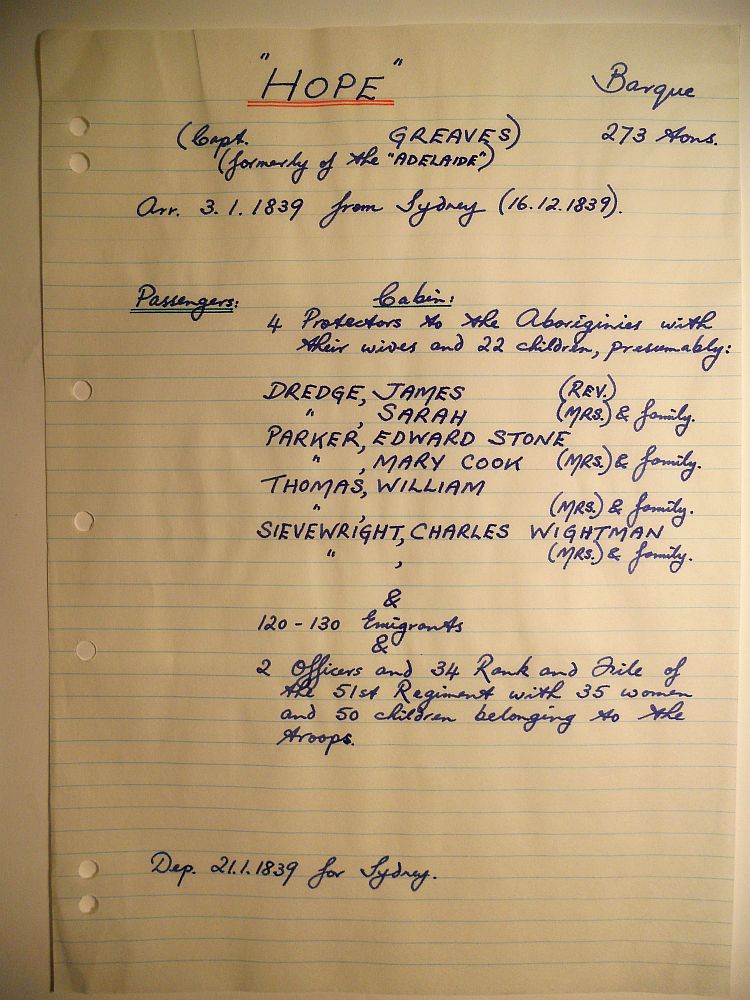 "HOPE" Barque
(Capt. GREAVES) 273 tons.
(formerly of the "ADELAIDE")
Arr. 3.1.1839 from Sydney (16.12.1839).
Passengers: Cabin:
4 Protectors to the Aboriginies with
their wives and 22 children, presumably:
DREDGE, JAMES (REV.)
" , SARAH (MRS.) & family.
PARKER, EDWARD STONE
" , MARY COOK (MRS.) & family.
THOMAS, WILLIAM
" , (MRS.) & family.
SIEVEWRIGHT, CHARLES WIGHTMAN
" , (MRS.) & family.
&
120 - 130 Emigrants
&
2 Officers and 34 Rank and File of
the 51st Regiment with 35 women
and 50 children belonging to the
troops.
Dep. 21.1.1839 for Sydney.